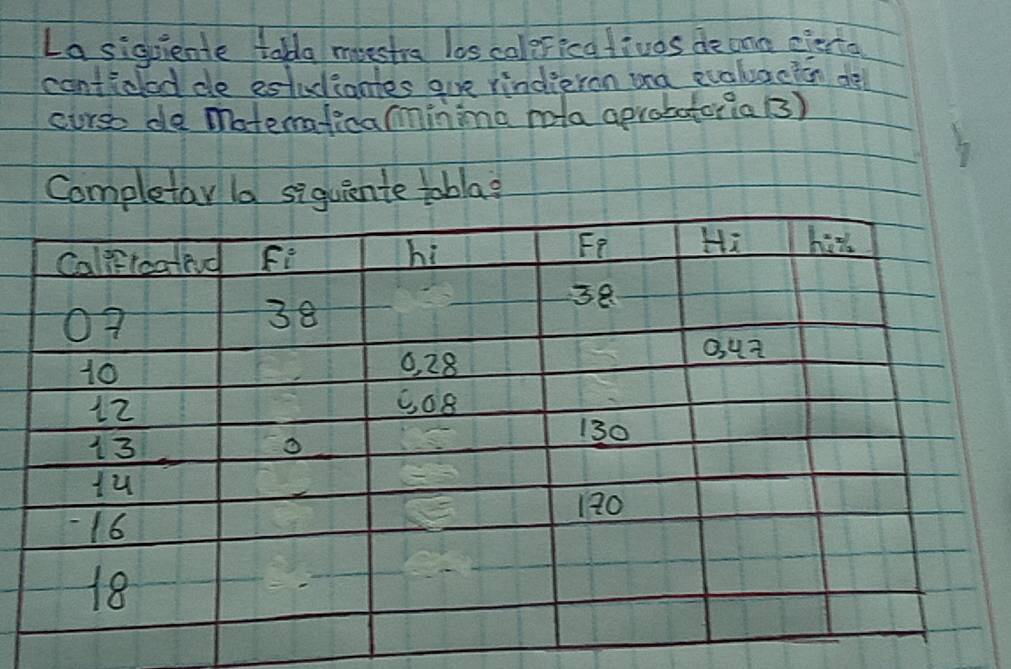 La siguiente tabla muestra los calificativos de una cierta
cantidad de estudiantes que rindieron una evaluación del
curso de Matematica (minima nota aprobatoria 13)
Completar la siguiente tabla:
Calificativo Fi hi Fi Hi hi%
07 38 38
10 0,28 0,47
12 0,08
13 0 130
14
16 170
18